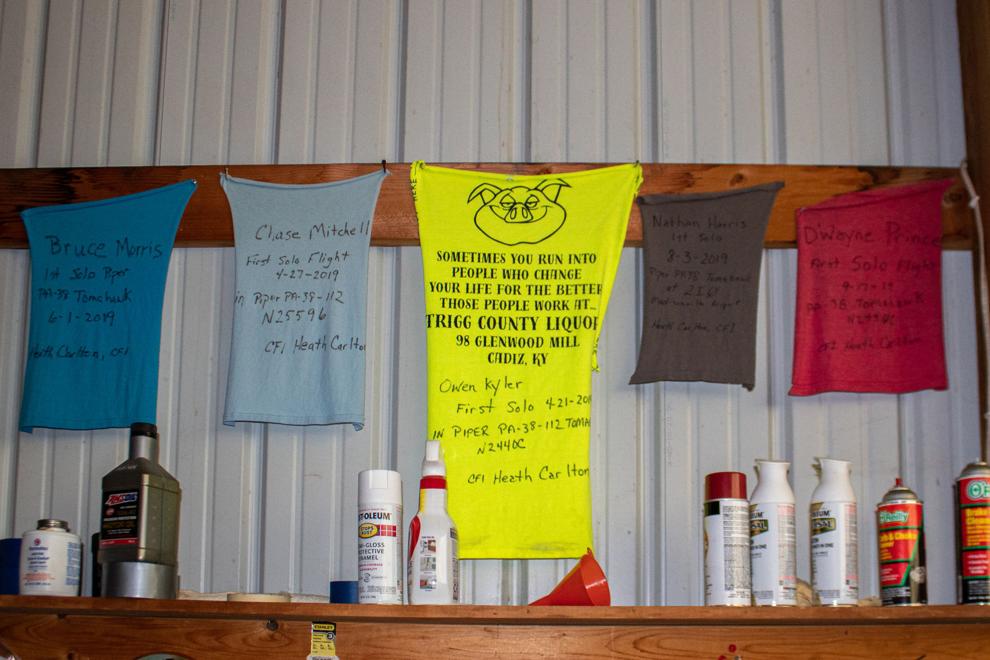 Bruce Morris
1st Solo Piper
PA-38 Tomahawk
6-1-2019
Heath Carlton, CFI
Chase Mitchell
First Solo Flight
4-27-2019
in Piper PA-38-112
N25596
CFI Heath Carlton
SOMETIMES YOU RUN INTO
PEOPLE WHO CHANGE
YOUR LIFE FOR THE BETTER
THOSE PEOPLE WORK AT...
TRIGG COUNTY LIQUOR
98 GLENWOOD MILL
CADIZ, KY
Owen Kyler
First Solo 4-21-201
IN PIPER PA-38-112 TOMA
N2440C
CFI Heath Carlton
Nathan Harris
1st Solo
8-3-2019
Piper PA38 Tomahawk
at 2I6
Heath Carlton, CFI
D'Wayne Prince
First Solo Flight
9-17-19
PA-38 TOMAHAWK
CFI Heath Carlton
AMSOIL
MOTOR OIL
RUST-OLEUM
STOPS RUST
SEMI-GLOSS
PROTECTIVE
ENAMEL
O'Reilly
Carb & Choke
Brake
Cleaner
STANLEY